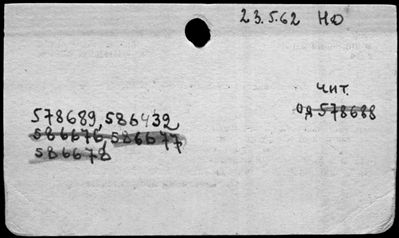 23.5.62 НФ
чит.
од 578688
578689, 586432
586676, 586677
586678